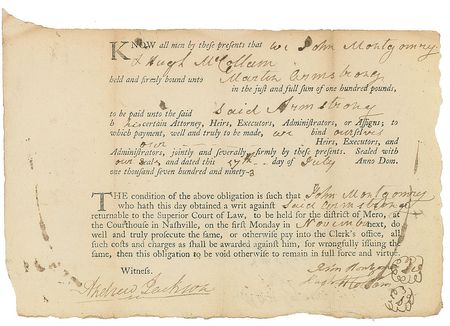 KNOW all men by these presents that we John Montgomery
& Hugh McCollum
held and firmly bound unto Martin Armstrong
in the just and full sum of one hundred pounds,
to be paid unto the said Said Armstrong
his certain Attorney, Heirs, Executors, Administrators, or Assigns; to
which payment, well and truly to be made, we bind ourselves
our Heirs, Executors, and
Administrators, jointly and severally firmly by these presents. Sealed with
our seals and dated this 17th day of July Anno Dom.
one thousand seven hundred and ninety-3
THE condition of the above obligation is such that John Montgomery
who hath this day obtained a writ against Said Armstrong
returnable to the Superior Court of Law, to be held for the district of Mero, at
the Courthouse in Nashville, on the first Monday in November next, do
well and truly prosecute the same, or otherwise pay into the Clerk's office, all
such costs and charges as shall be awarded against him, for wrongfully issuing the
same, then this obligation to be void otherwise to remain in full force and virtue.
Witness.
John Montgomery
Andrew Jackson
Hugh McCollum